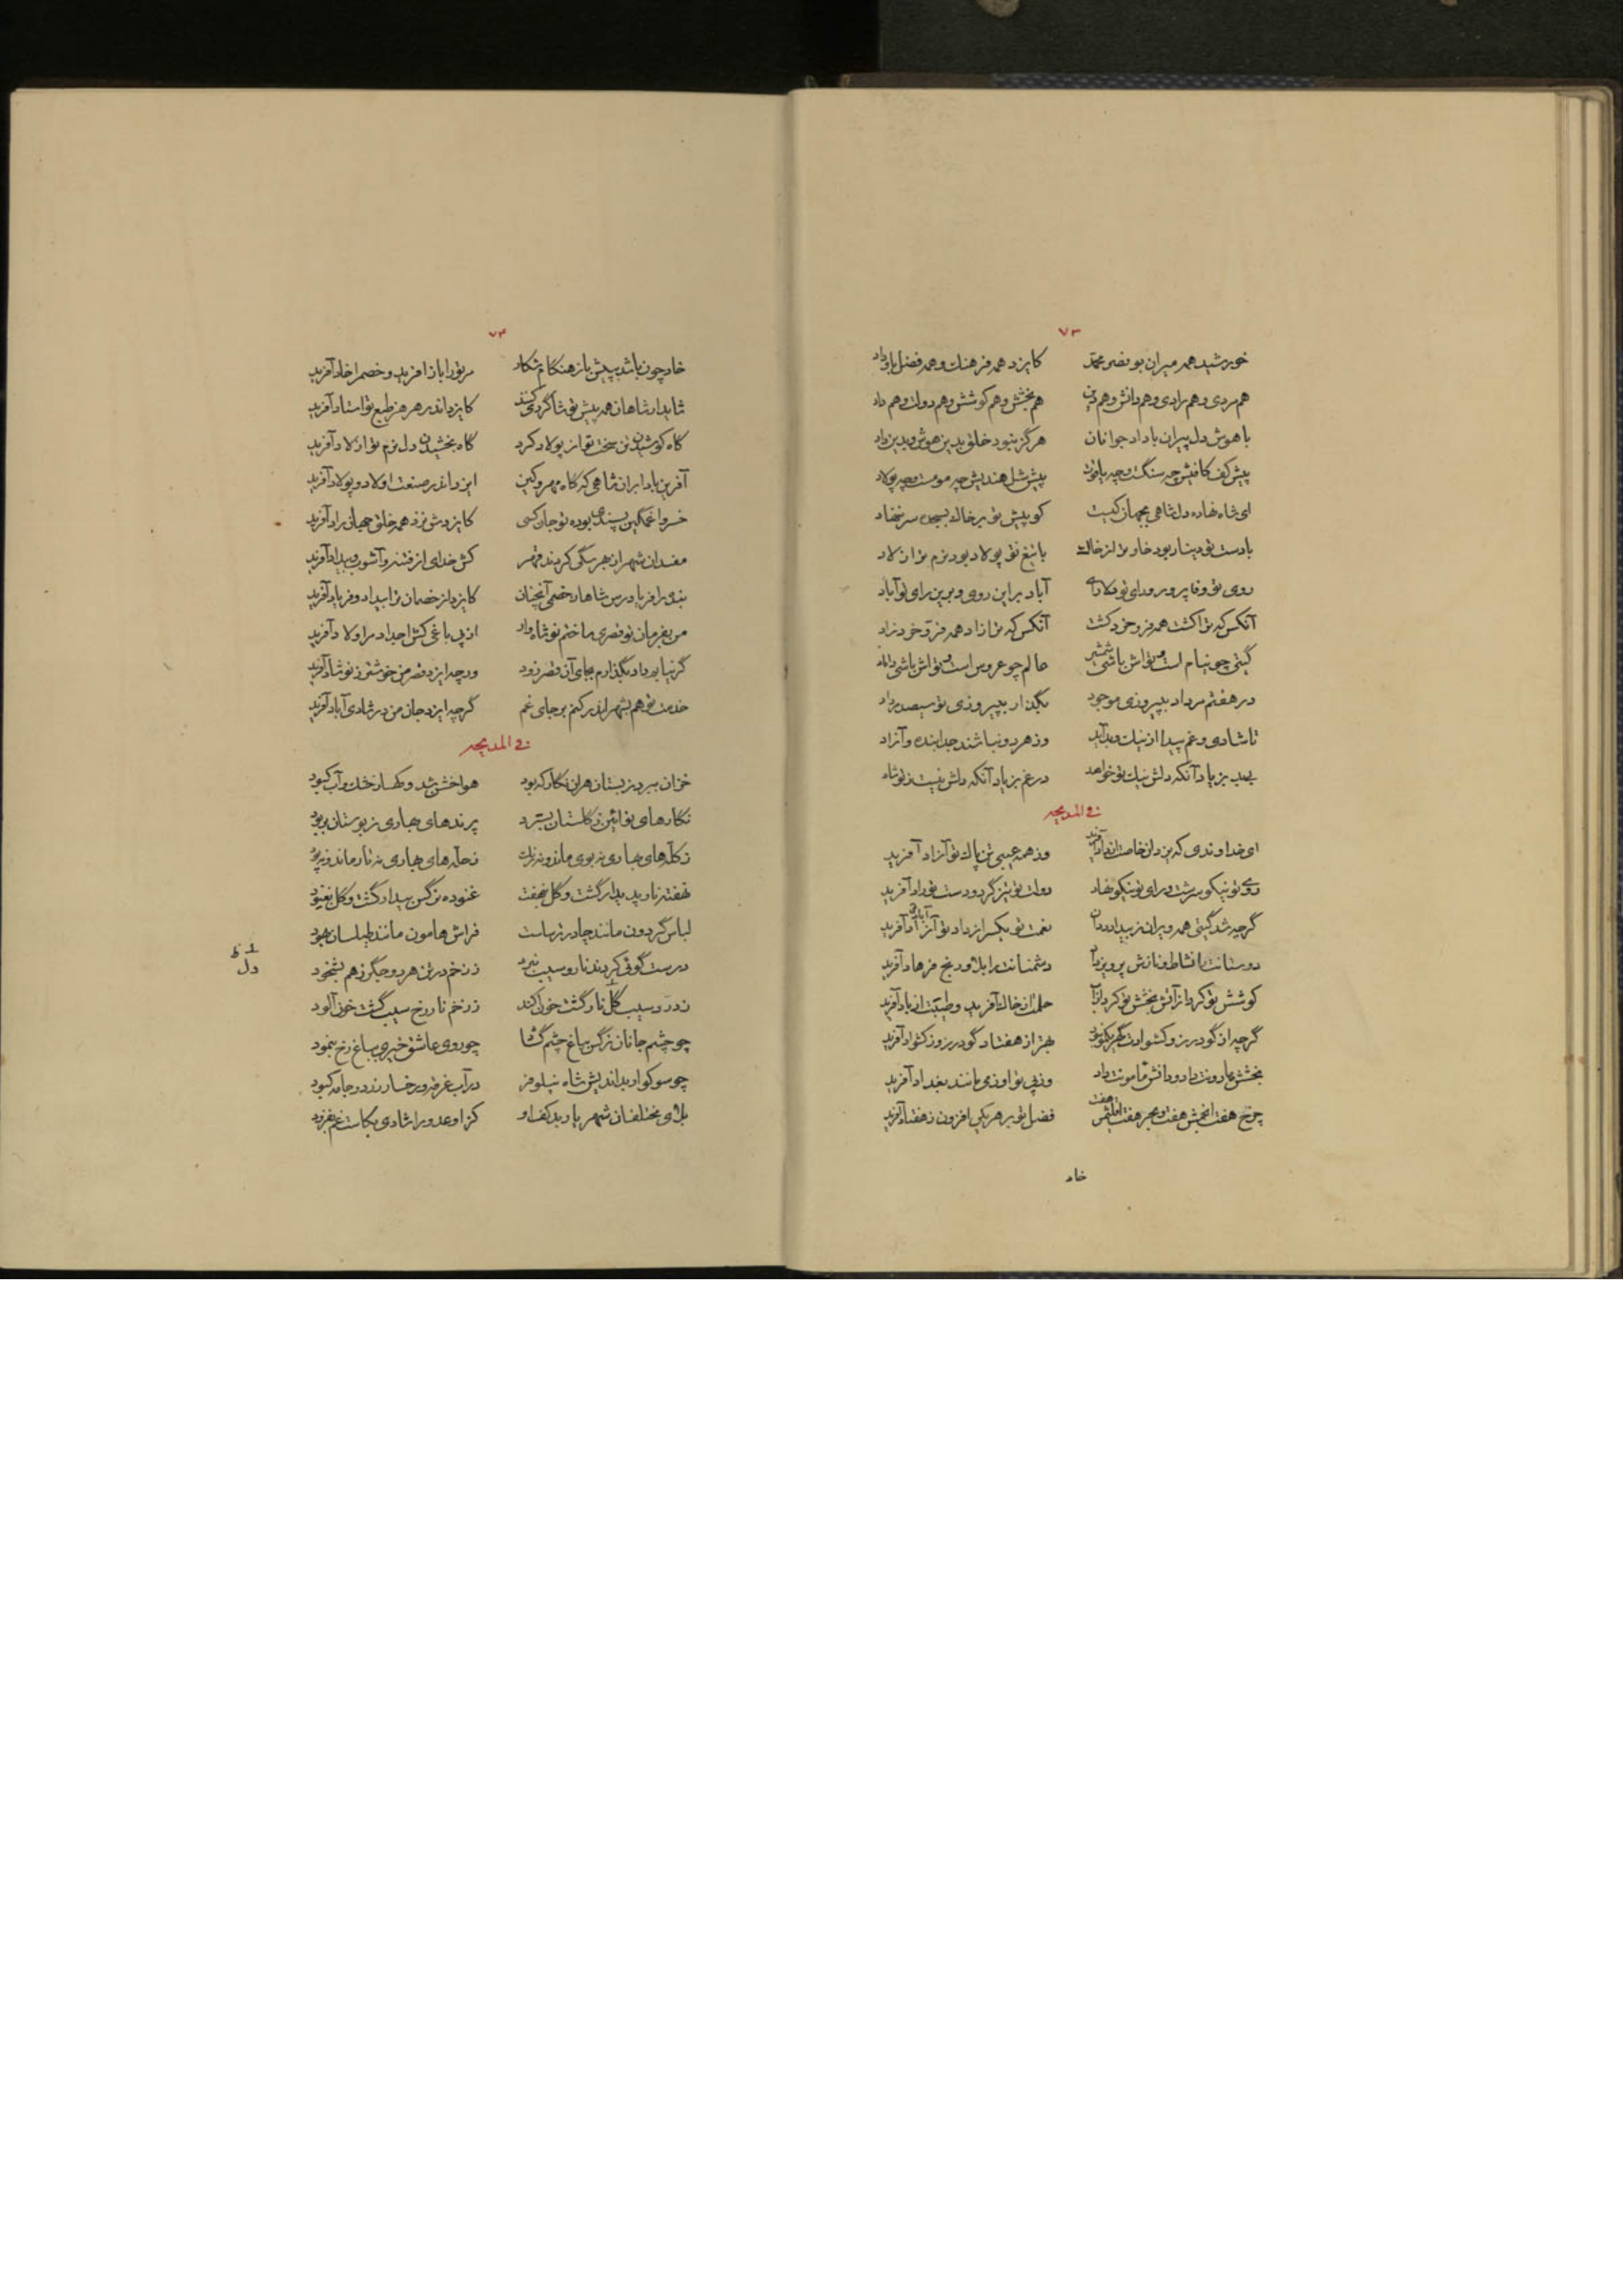 ۷۳
خورشید همه میران بو نصر محمد کایزد همه فرهنک و همه فضل باو داد
هم مردی و هم رادی و هم دانش و هم دین هم بخشش و هم کوشش و هم دولت و هم داد
با هوش دل پیران با داد جوانان هرگز نبود خلق بدین هوش و بدین داد
پیش کف کافیش چه سنگ و چه یاقوت پیش شل هندیش چه موم و چه پولاد
ای شاه نهاده دل شاهی بجهان کیست کو پیش تو بر خاک سر ننهاد
با دست تو دینار بود خوار تر از خاک با تیغ تو پولاد بود نرم تر از لاد
روی تو وفا پرور و رای تو آباد بر این روی و برین رای تو آباد
آنکس که ترا کشت همه فر و خرد کشت آنکس که ترا زاد همه فر و خرد زاد
گیتی چو نیام است و تواش باشی شمشیر عالم چو عروس است و تواش باشی داماد
در هفتم مرداد بپیروزی موجود بگذار بپیروزی تو سیصد مرداد
تا شادی و غم پیدا از نیک و بد آید وز هر دو نباشند جدا بنده و آزاد
بزیاد آنکه دلش نیک تو خواهد در غم بزیاد آنکه دلش نیست بتو شاد
فی المدیحه
ای خداوندی که یزدان خاصت از داد آفرید وز همه عیبی تن پاک تو آزاد آفرید
روی تو نیکو سرشت و رای تو نیکو نهاد دولت تو تیز گرد و دست تو راد آفرید
گرچه شد گیتی همه ویران ز بیداد بدان نعمت تو یکسر از داد تو آباد آفرید
دوستانت را نشاط و نازش پرویز داد دشمنانت را بلا و رنج فرهاد آفرید
کوشش تو کرد از آتش بخشش تو کرد از آب حلمت از خاک آفرید و طیبت از باد آفرید
گرچه از گودرز و کشوادت گهر بهتر از هفتاد گودرز و ز کشواد آفرید
بخشش هارونت داد و دانش مامونت داد وز پی تو مانند بغداد آفرید
چرخ هفت انجمش هفت و بحر هفت اقلیم هفت فضل تو بر هر یکی افزون ز هفتاد آفرید
خاد
۷۴
خاد چون باشد به پیش باز هنگام شکار مر ترا باز آفرید و خصم را خاد آفرید
شاید ار شاهان همه پیش تو شاگردی کنند کایزد اندر هر هنر طبع تو استاد آفرید
گاه کوشیدن تن سخت تو از پولاد کرد گاه بخشیدن دل نرم تو از لاد آفرید
آفرین باد ابر آن شاهی که گاه مهر و کین ایزد اندر صنعت او لاد و پولاد آفرید
خسروا غمگین پسندی بوده تو جان کسی کایزدش نزد همه خلق جهان راد آفرید
مفسدان شهر از هر سگی کردند قهر کش خدای از فتنه و آشوب و بیداد آفرید
بنده را فریادرس شاها ز خصمی آنچنان کایزد از خصمان ترا بیداد و فریاد آفرید
من بفرمان تو قصری ساختم تو شاه وار از پی باغی کش اجداد مرا و لاد آفرید
گر نیاید داد بگذارم بجای آن قصر زود ورچه ایزد قصر من خوشتر ز نوشاد آفرید
خدمت تو هم بشهر اندر کنم بر جای غم گرچه ایزد جان من در شادی آباد آفرید
فی المدیحه
خزان ببرد ز بستان هر آن نگار که بود هوا خشن شد و کهسار خشک و آب کبود
نگارهای نوآئین ز گلستان بسترد پرندهای بهاری ز بوستان بربود
ز کلهای بهاری نه بوی ماند و نه رنگ ز حلهای بهاری نه تار ماند و نه پود
نهفته نار پدیدار گشت و گل بنهفت غنوده نرگس بیدار گشت و گل بغنود
لباس گردون مانند چادر ترساست فراش هامون مانند طیلسان یهود
درست گوئی کردند نار و سیب نبرد ز زخم در تن هر دو جگر ز هم بشخود
ز درد سیب گل نار گشت خون آکند ز زخم نار رخ سیب گشت خون آلود
چو چشم جانان نرگس بباغ چشم گشاد چو روی عاشق خیری بباغ رخ بنمود
چو سوکوار بداندیش شاه نیلوفر در آب غرقه و رخسار زرد و جامه کبود
بلای مختلفان شهریار بدکف او کز او عدو را شادی بکاست غم بفزود
دل